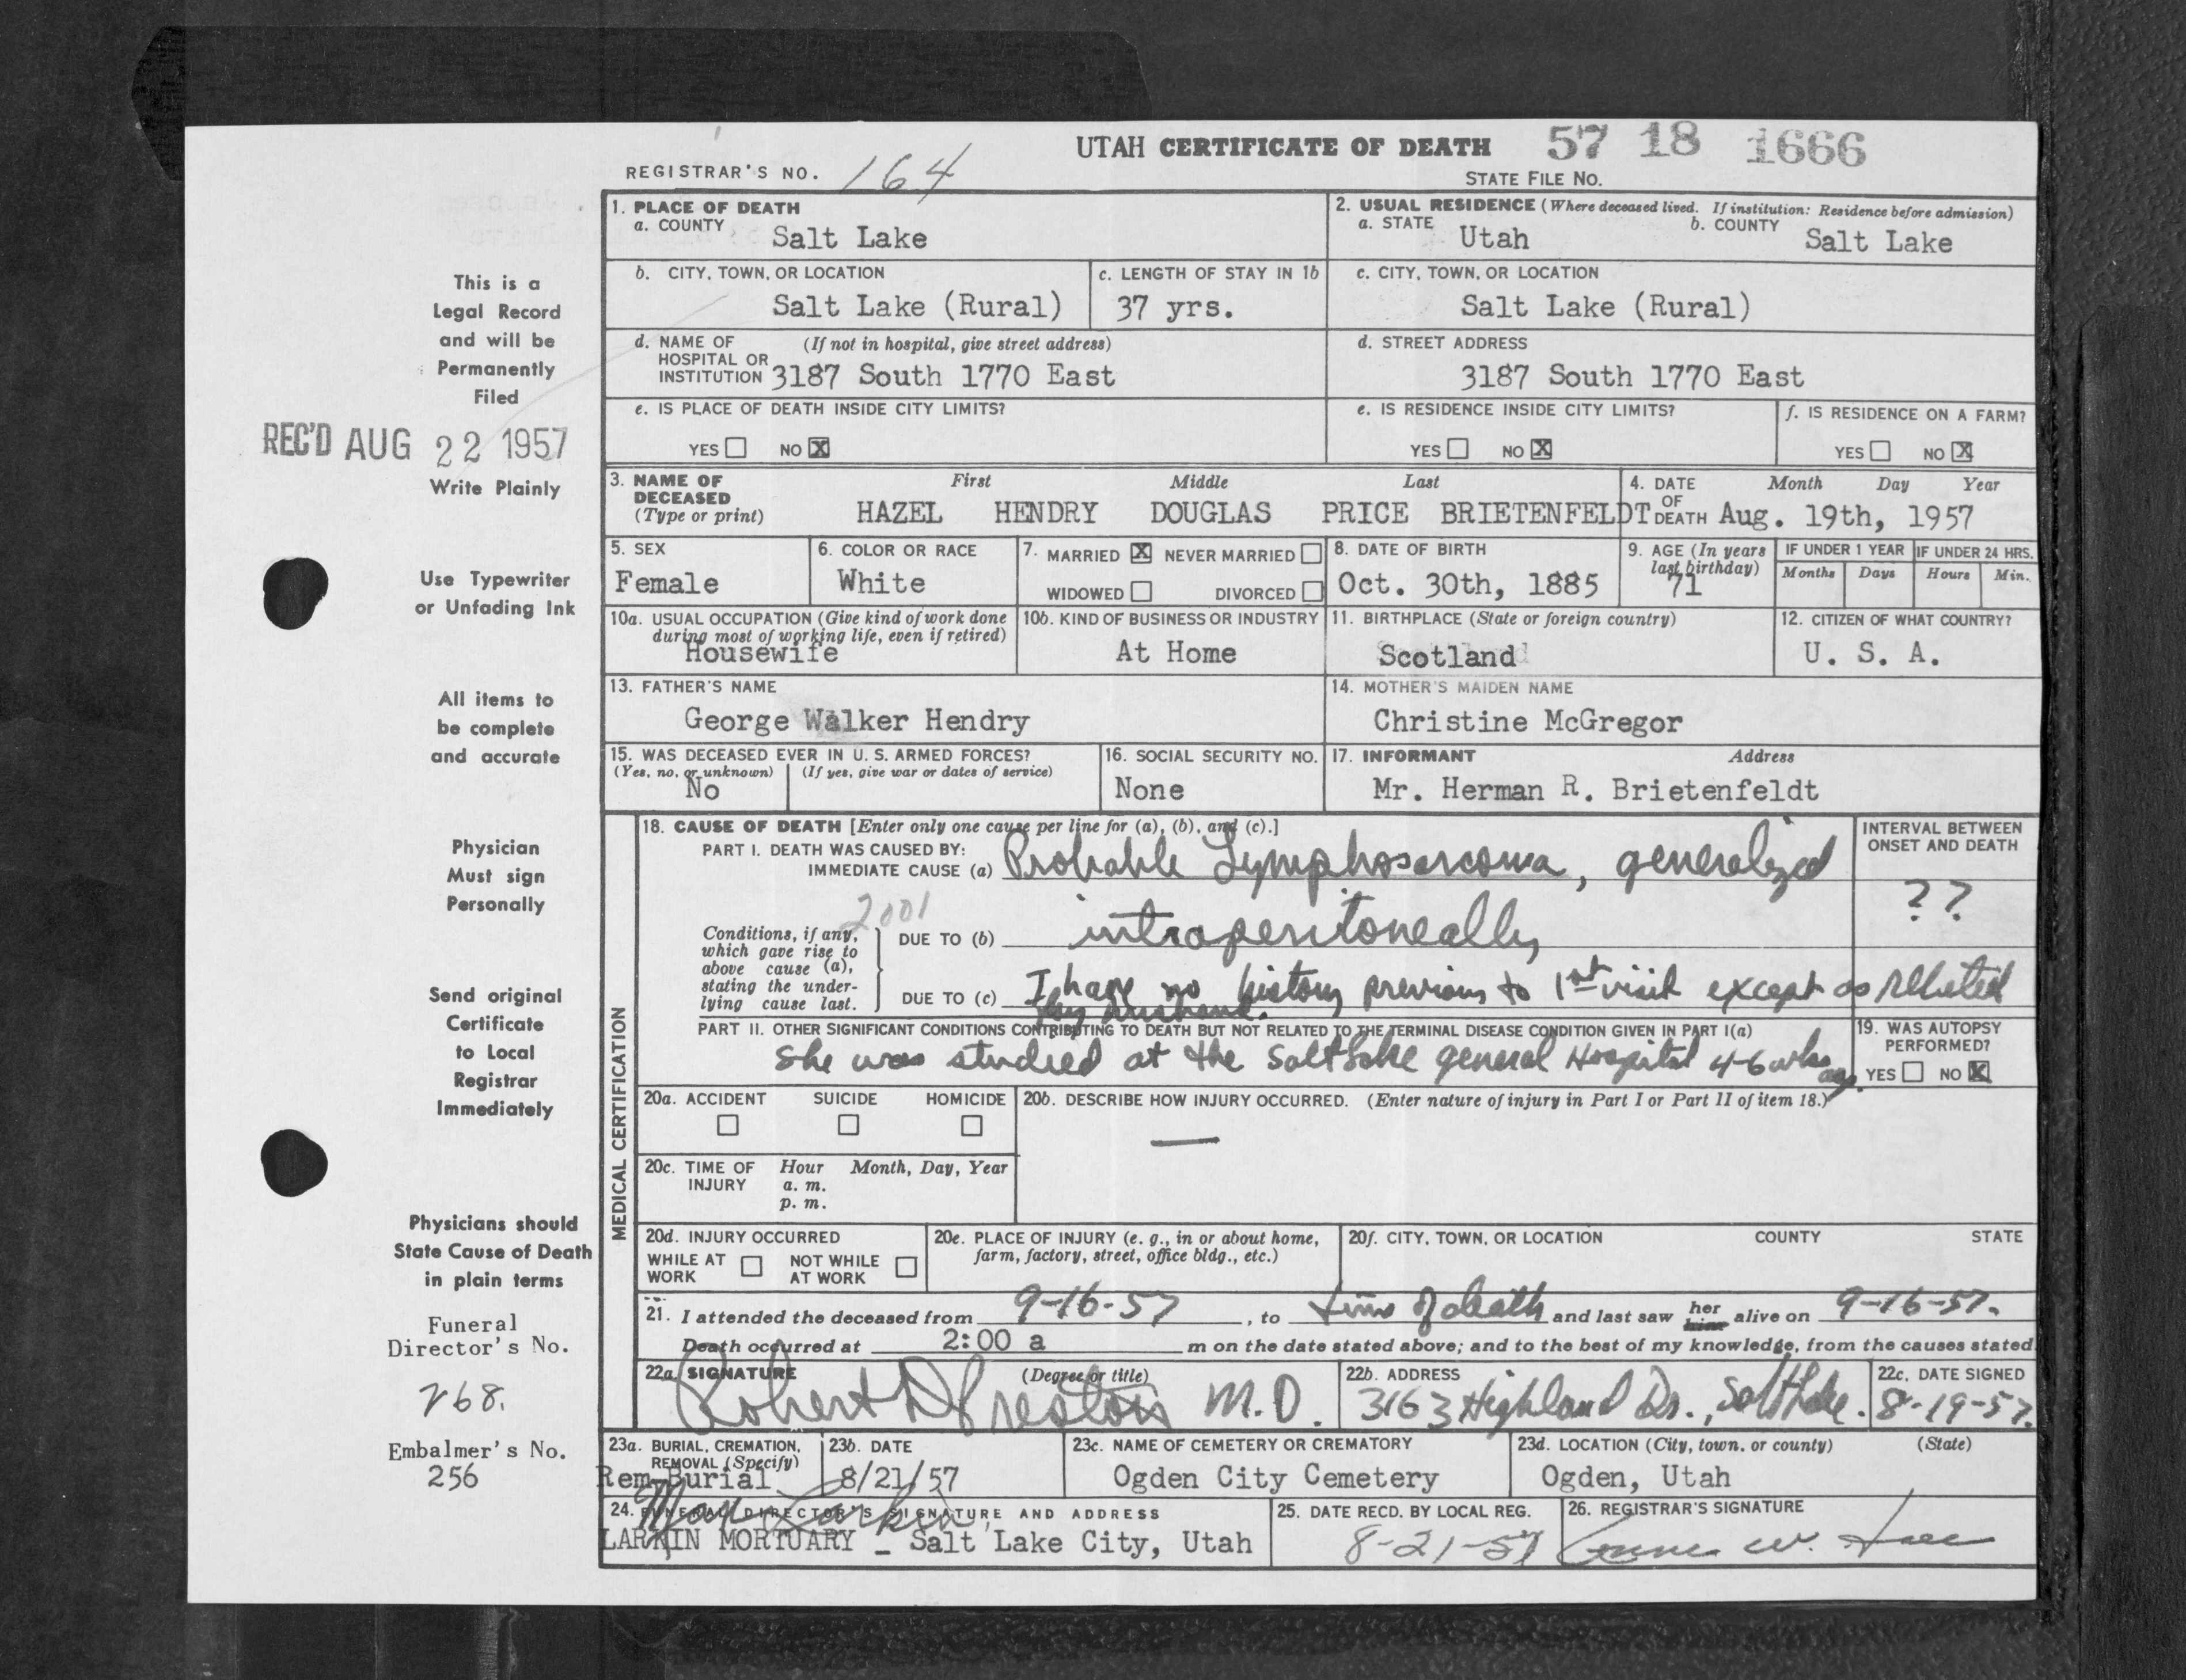 UTAH CERTIFICATE OF DEATH 57 18 1666
REGISTRAR'S NO. 164
STATE FILE NO.
1. PLACE OF DEATH
a. COUNTY Salt Lake
2. USUAL RESIDENCE (Where deceased lived. If institution: Residence before admission)
a. STATE Utah b. COUNTY Salt Lake
b. CITY, TOWN, OR LOCATION Salt Lake (Rural)
c. LENGTH OF STAY IN 1b 37 yrs.
c. CITY, TOWN, OR LOCATION Salt Lake (Rural)
d. NAME OF HOSPITAL OR INSTITUTION (If not in hospital, give street address) 3187 South 1770 East
d. STREET ADDRESS 3187 South 1770 East
e. IS PLACE OF DEATH INSIDE CITY LIMITS?
YES NO X
e. IS RESIDENCE INSIDE CITY LIMITS?
YES NO X
f. IS RESIDENCE ON A FARM?
YES NO X
3. NAME OF DECEASED (Type or print) First Middle Last
HAZEL HENDRY DOUGLAS PRICE BRIETENFELDT
4. DATE OF DEATH Month Day Year
Aug. 19th, 1957
5. SEX Female
6. COLOR OR RACE White
7. MARRIED X NEVER MARRIED
WIDOWED DIVORCED
8. DATE OF BIRTH Oct. 30th, 1885
9. AGE (In years last birthday) 71
IF UNDER 1 YEAR Months Days
IF UNDER 24 HRS. Hours Min.
10a. USUAL OCCUPATION (Give kind of work done during most of working life, even if retired) Housewife
10b. KIND OF BUSINESS OR INDUSTRY At Home
11. BIRTHPLACE (State or foreign country) Scotland
12. CITIZEN OF WHAT COUNTRY? U. S. A.
13. FATHER'S NAME George Walker Hendry
14. MOTHER'S MAIDEN NAME Christine McGregor
15. WAS DECEASED EVER IN U. S. ARMED FORCES?
(Yes, no, or unknown) No (If yes, give war or dates of service)
16. SOCIAL SECURITY NO. None
17. INFORMANT Address
Mr. Herman R. Brietenfeldt
MEDICAL CERTIFICATION
18. CAUSE OF DEATH [Enter only one cause per line for (a), (b), and (c).]
PART I. DEATH WAS CAUSED BY:
IMMEDIATE CAUSE (a) Probable Lymphosarcoma, generalized
INTERVAL BETWEEN ONSET AND DEATH
??
2001
Conditions, if any, which gave rise to above cause (a), stating the underlying cause last.
DUE TO (b) intraperitoneally
DUE TO (c) I have no history previous to 1st visit except as related
by husband.
PART II. OTHER SIGNIFICANT CONDITIONS CONTRIBUTING TO DEATH BUT NOT RELATED TO THE TERMINAL DISEASE CONDITION GIVEN IN PART I(a)
She was studied at the Salt Lake general Hospital 4-6 wks ago.
19. WAS AUTOPSY PERFORMED?
YES NO X
20a. ACCIDENT SUICIDE HOMICIDE
20b. DESCRIBE HOW INJURY OCCURRED. (Enter nature of injury in Part I or Part II of item 18.)
—
20c. TIME OF INJURY Hour Month, Day, Year
a. m.
p. m.
20d. INJURY OCCURRED
WHILE AT WORK NOT WHILE AT WORK
20e. PLACE OF INJURY (e. g., in or about home, farm, factory, street, office bldg., etc.)
20f. CITY, TOWN, OR LOCATION COUNTY STATE
21. I attended the deceased from 9-16-57, to time of death and last saw her him alive on 9-16-57.
Death occurred at 2:00 a m on the date stated above; and to the best of my knowledge, from the causes stated.
22a. SIGNATURE (Degree or title)
Robert D Preston M.D.
22b. ADDRESS
3163 Highland Dr., Salt Lake.
22c. DATE SIGNED
8-19-57.
23a. BURIAL, CREMATION, REMOVAL (Specify)
Rem-Burial
23b. DATE
8/21/57
23c. NAME OF CEMETERY OR CREMATORY
Ogden City Cemetery
23d. LOCATION (City, town, or county) (State)
Ogden, Utah
24. FUNERAL DIRECTOR'S SIGNATURE AND ADDRESS
LARKIN MORTUARY - Salt Lake City, Utah
25. DATE RECD. BY LOCAL REG.
8-21-57
26. REGISTRAR'S SIGNATURE
This is a
Legal Record
and will be
Permanently
Filed
REC'D AUG 22 1957
Write Plainly
Use Typewriter
or Unfading Ink
All items to
be complete
and accurate
Physician
Must sign
Personally
Send original
Certificate
to Local
Registrar
Immediately
Physicians should
State Cause of Death
in plain terms
Funeral
Director's No.
768.
Embalmer's No.
256